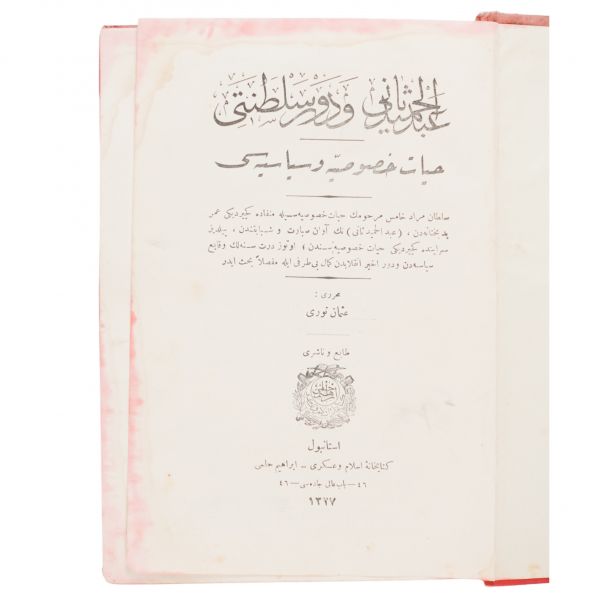 عبدالحميد ثانى ودور سلطنتى
حيات خصوصيه و سياسيه سى
سلطان مراد خامس مرحومك حيات خصوصيه سيله منفاده كچيرديكى عمر
بدبختانه دن ، (عبد الحميد ثانى) نك آوان صباوت و شبابتندن ، ييلديز
سراينده كچيرديكى حيات خصوصيه سندن ، اوتوز درت سنه لك وقايع
سياسه دن و دور اخير انقلابدن كمال بى طرفى ايله مفصلاً بحث ايدر
محررى :
عثمان نورى
طابع و ناشرى
استانبول
كتابخانهٔ اسلام و عسكرى ــ ابراهيم حلمى
٤٦ — باب عالى جاده سى — ٤٦
١٣٢٧